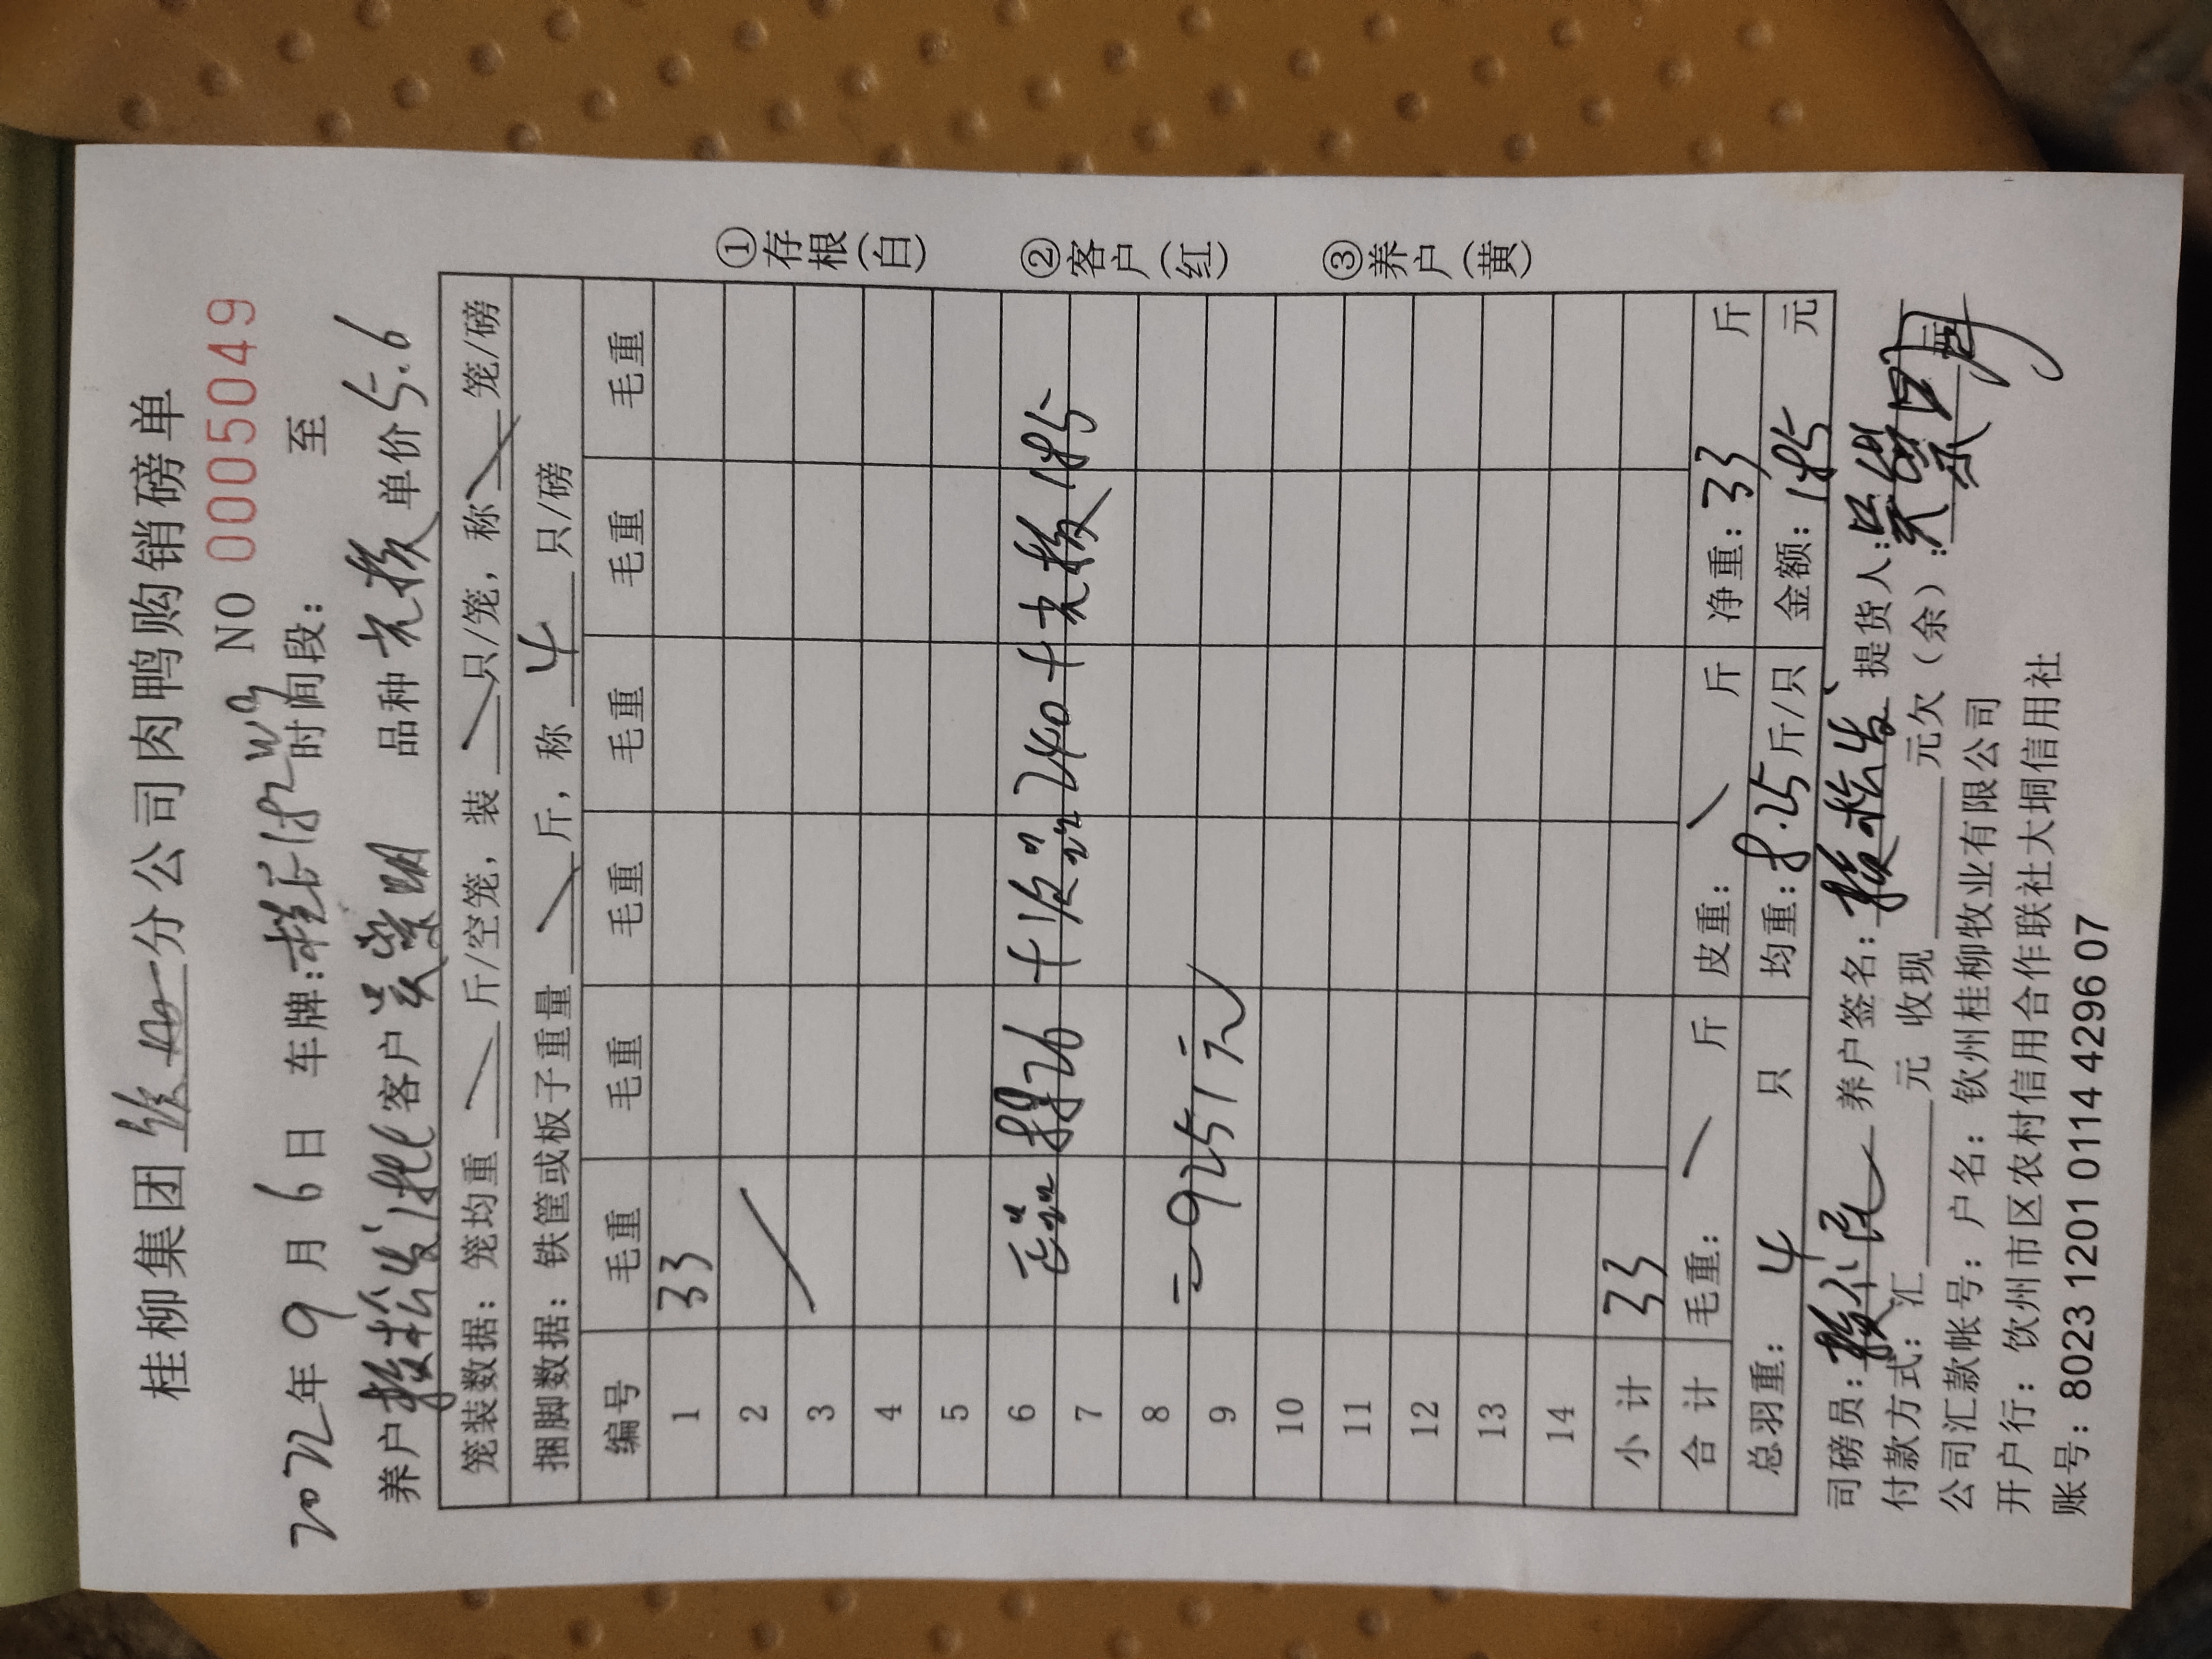 桂柳集团 分公司肉鸭购销磅单
NO 0005049
2022年9月6日 车牌: 时间段: 至
养户 客户 吴紫明 品种 单价5.6
笼装数据：笼均重 斤/空笼，装 只/笼，称 笼/磅
捆脚数据：铁筐或板子重量 斤，称 4 只/磅
编号 毛重 毛重 毛重 毛重 毛重 毛重
1 33
2
3
4
5
6
7
240 + 185
8
9
=9251元
10
11
12
13
14
小计 33
合计 毛重： 斤 皮重： 斤 净重：33 斤
总羽重：4 只 均重：8.25斤/只 金额：185 元
司磅员： 养户签名： 提货人：吴紫明
付款方式：汇 元 收现 元欠（余）： 元
公司汇款帐号：户名：钦州桂柳牧业有限公司
开户行：钦州市区农村信用合作联社大垌信用社
账号：8023 1201 0114 4296 07
①存根(白)
②客户(红)
③养户(黄)